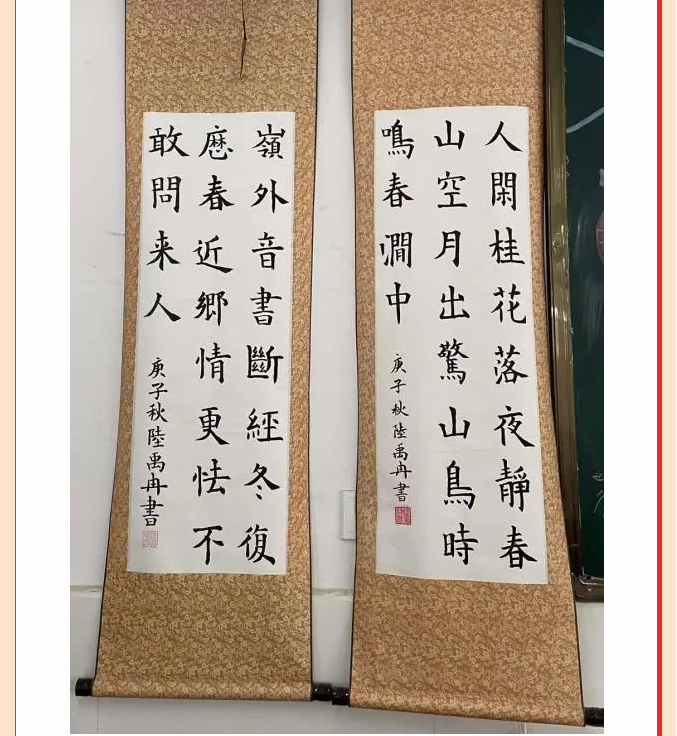 人閑桂花落夜靜春
山空月出驚山鳥時
鳴春澗中
庚子秋陸禹冉書
嶺外音書斷經冬復
歷春近鄉情更怯不
敢問来人
庚子秋陸禹冉書